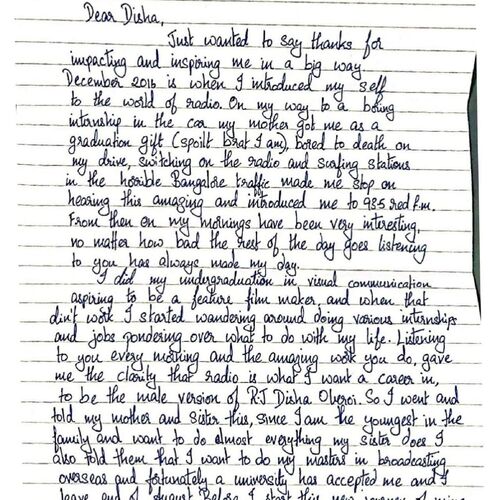 Dear Disha,
Just wanted to say thanks for
impacting and inspiring me in a big way
December 2016 is when I introduced my self
to the world of radio. On my way to a boring
internship in the car my mother got me as a
graduation gift (spoilt brat I am), bored to death on
my drive, switching on the radio and surfing stations
in the horrible Bangalore traffic made me stop on
hearing this amazing and introduced me to 93.5 red f.m.
From then on my mornings have been very interesting,
no matter how bad the rest of the day goes listening
to you has always made my day.
I did my undergraduation in visual communication
aspiring to be a feature film maker, and when that
din't work I started wandering around doing various internships
and jobs pondering over what to do with my life. Listening
to you every morning and the amazing work you do, gave
me the clarity that radio is what I want a career in,
to be the male version of RJ Disha Oberoi. So I went and
told my mother and sister this, since I am the youngest in the
family and want to do almost everything my sister does I
also told them that I want to do my masters in broadcasting
overseas and fortunately a university has accepted me and I
leave end of August. Before I start this new journey of mine